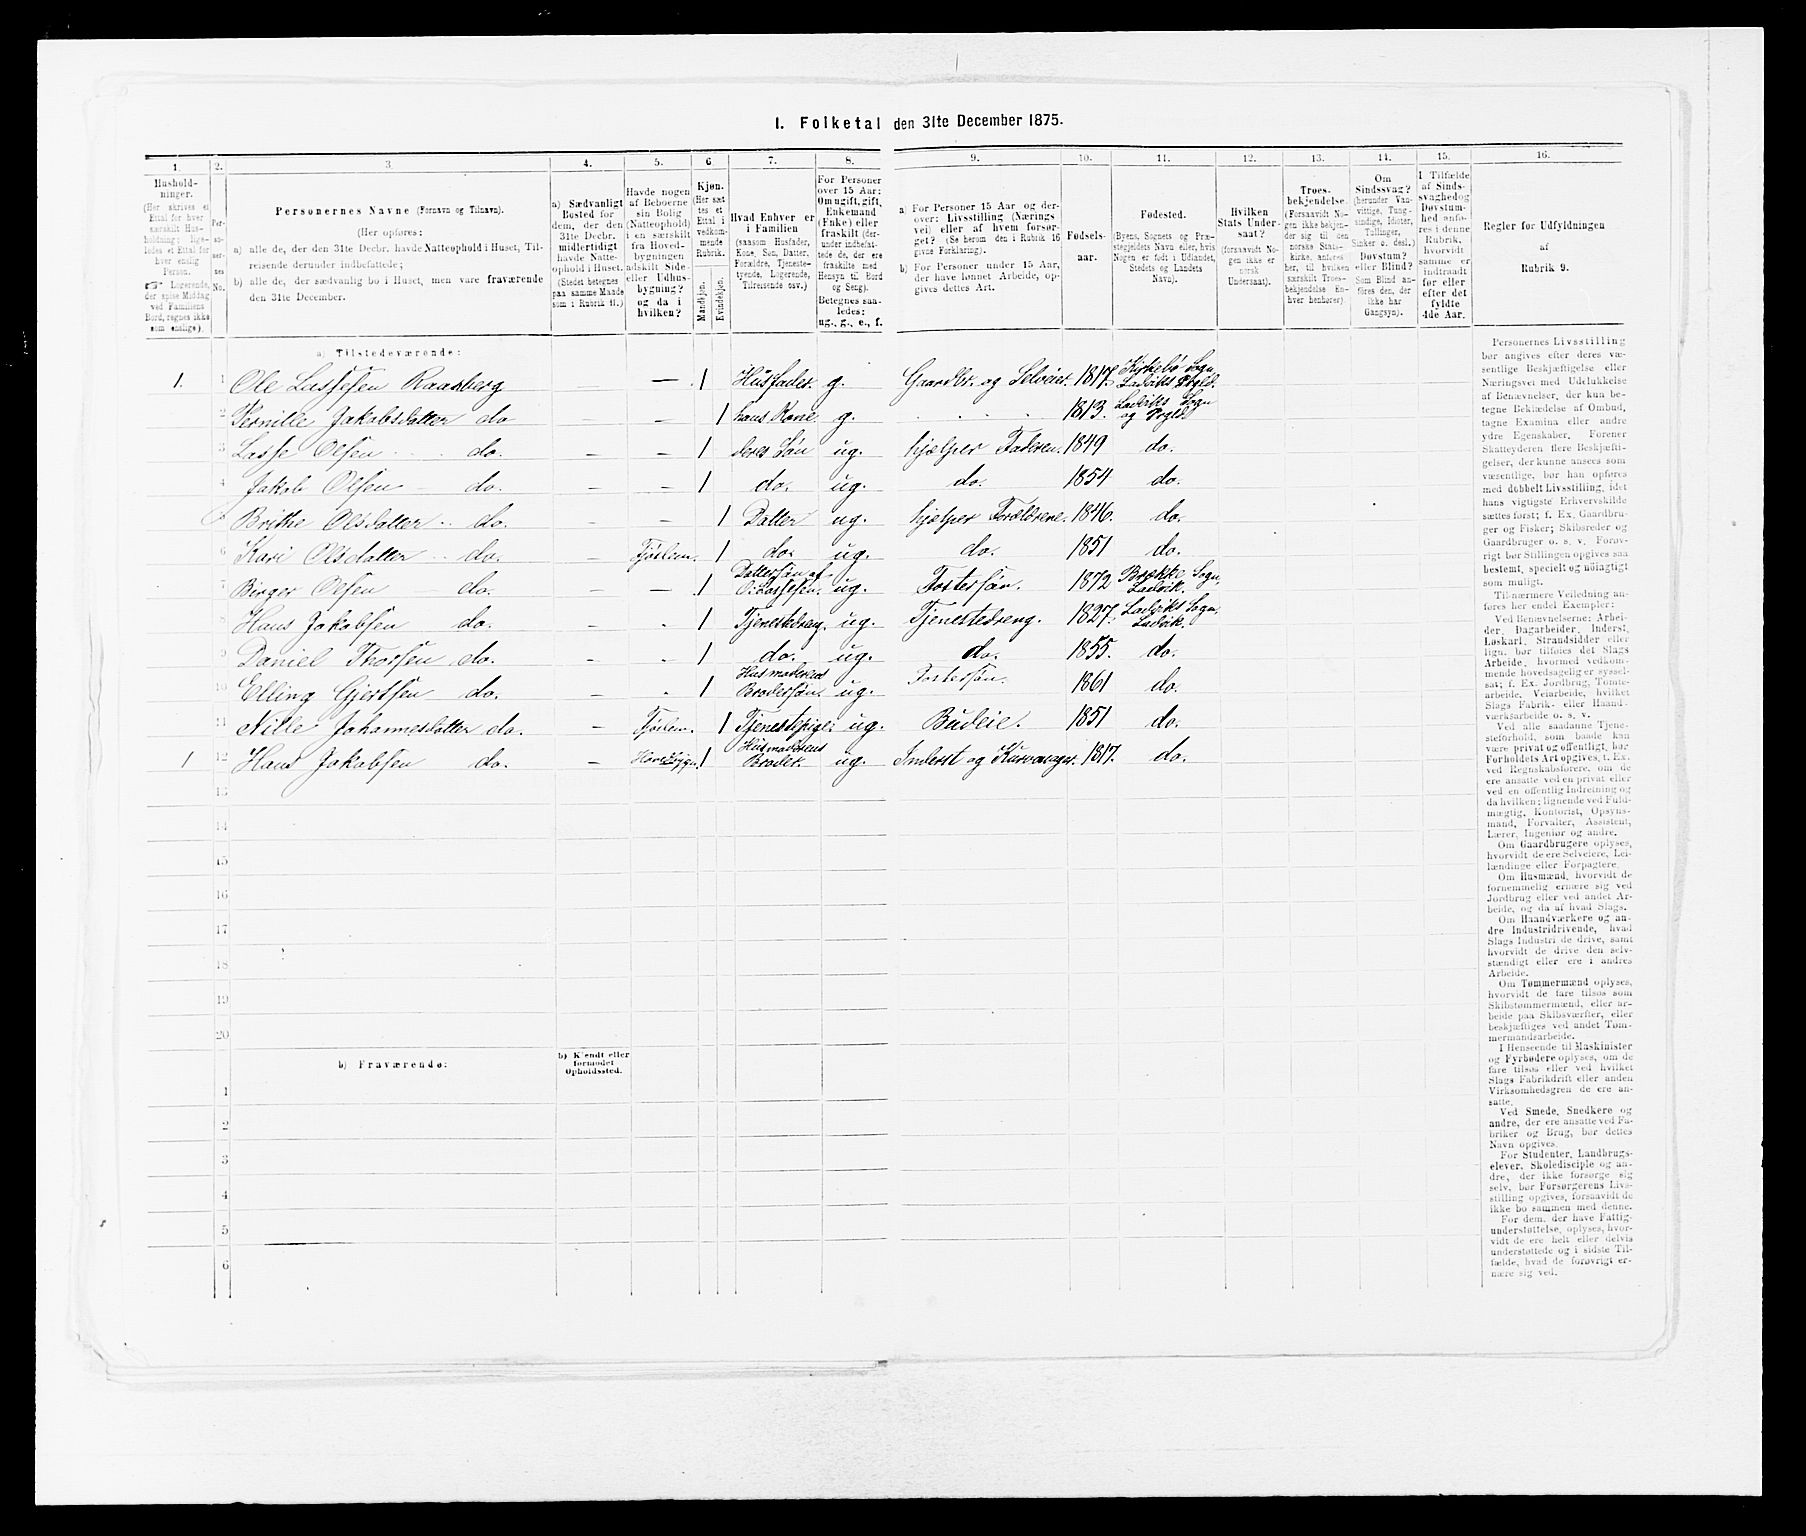 I. Folketal den 31te December 1875.
1. 2. 3. 4. 5. 6 7. 8. 9. 10. 11. 12. 13. 14. 15. 16.
Husholdninger.
(Her skrives et Ettal for hver særskilt Husholdning; ligeledes et Ettal for hver enslig Person.
☞ Logerende, der spise Middag ved Familiens Bord, regnes ikke som enslige).
Personernes No.
Personernes Navne (Fornavn og Tilnavn).
(Her opføres:
a) alle de, der den 31te Decbr. havde Natteophold i Huset, Tilreisende derunder indbefattede;
b) alle de, der sædvanlig bo i Huset, men vare fraværende den 31te December.
a) Sædvanligt Bosted for dem, der den 31te Decbr. midlertidigt havde Natteophold i Huset.
(Stedet betegnes paa samme Maade som i Rubrik 11.)
Havde nogen af Beboerne sin Bolig (Natteophold) i en særskilt fra Hovedbygningen adskilt Side- eller Udhusbygning? og da i hvilken?
Kjøn.
(Her sættes et Ettal i vedkommende Rubrik.
Mandkjøn.
Kvindekjøn.
Hvad Enhver er i Familien
(saasom Husfader, Kone, Søn, Datter, Forældre, Tjenestetyende, Logerende, Tilreisende osv.)
For Personer over 15 Aar: Om ugift, gift, Enkemand (Enke) eller fraskilt (derunder indbefattede de, der ere fraskilte med Hensyn til Bord og Seng).
Betegnes saaledes: ug., g., e., f.
a) For Personer 15 Aar og derover: Livsstilling (Næringsvei) eller af hvem forsørget? (Se herom den i Rubrik 16 givne Forklaring).
b) For Personer under 15 Aar, der have lønnet Arbeide, opgives dettes Art.
Fødselsaar.
Fødested.
(Byens, Sognets og Præstegjeldets Navn eller, hvis Nogen er født i Udlandet, Stedets og Landets Navn).
Hvilken Stats Undersaat?
(forsaavidt Nogen ikke er norsk Undersaat).
Troesbekjendelse.
(Forsaavidt Nogen ikke bekjender sig til den norske Statskirke, anføres her, til hvilken særskilt Troesbekjendelse Enhver henhører).
Om Sindssvag? (herunder Vanvittige, Tungsindige, Idioter, Tullinger, Sinker o. desl.) Døvstum? eller Blind? Som Blind anføres den, der ikke har Gangsyn).
I Tilfælde af Sindssvaghed og Døvstumhed anføres i denne Rubrik, hvorvidt samme er indtraadt før eller efter det fyldte 4de Aar.
Regler for Udfyldningen af Rubrik 9.
a) Tilstedeværende:
1. 1 Ole Lassesen Raasberg — — 1 Husfader. g. Gaardbr. og Selveier. 1817. Kirkebø Sogn, Ladviks Prgld.
2 Pernille Jakobsdatter do — — 1 hans Kone g. 1813. Ladviks Sogn og Prgld.
3 Lasse Olsen do. — — 1 deres Søn ug. hjelper Faderen. 1849 do.
4 Jakob Olsen — do. — — 1 do. ug. do. 1854 do.
5 Brithe Olsdatter do. — — 1 Datter ug. hjelper Forældrene. 1846. do.
6 Kari Olsdatter do. — Fjøslem. 1 do. ug. do. 1851 do.
7 Birger Olsen — do. — — 1 Dattersøn af O. Lassesen. ug. Fostersøn. 1872 Brække Sogn, Ladvik.
8 Hans Jakobsen do. - . 1 Tjenestedreng. ug. Tjenestedreng. 1827. Ladviks Sogn, Ladvik.
9 Daniel Thorsen do. - . 1 do. ug. do. 1855. do.
10 Elling Gjertsen do. - . 1 Husmoderens Brodersøn. ug. Fostersøn. 1861 do.
11 Nille Johannesdatter do. — Fjøslem. 1 Tjenestepige. ug. Budeie. 1851 do.
1 12 Hans Jakobsen do. — Hovedbygn. 1 Husmoderens Broder. ug. Inderst og Kurvmager. 1817. do.
13
14
15
16
17
18
19
20
b) Fraværende:
b) Kjendt eller formodet Opholdssted.
1
2
3
4
5
6
Personernes Livsstilling
bør angives efter deres væsentlige Beskjæftigelse eller
Næringsvei med Udelukkelse
af Benævnelser, der kun betegne Beklædelse af Ombud,
tagne Examina eller andre
ydre Egenskaber. Forener
Skatteyderen flere Beskjæftigelser, der kunne ansees som
væsentlige, bør han opføres
med dobbelt Livsstilling, idet
hans vigtigste Erhvervskilde
sættes først; f. Ex. Gaardbruger og Fisker; Skibsreder og
Gaardbruger o. s. v. Forøvrigt bør Stillingen opgives saa
bestemt, specielt og nöiagtigt
som muligt.
Til nærmere Veiledning anføres her endel Exempler:
Ved Benævnelserne: Arbeider, Dagarbeider, Inderst,
Løskarl, Strandsidder eller
lign. bør tilføies det Slags
Arbeide, hvormed vedkommende hovedsagelig er sysselsat; f. Ex. Jordbrug, Tomtearbeide, Veiarbeide, hvilket
Slags Fabrik- eller Haandværksarbeide o. s. v.
Ved alle saadanne Tjenesteforhold, som baade kan
være privat og offentligt, bør
Forholdets Art opgives, f. Ex.
ved Regnskabsførere, om de
ere ansatte ved en privat eller
ved en offentlig Indretning og
da hvilken; lignende ved Fuldmægtig, Kontorist, Opsynsmand, Forvalter, Assistent,
Lærer, Ingeniør og andre.
Om Gaardbrugere oplyses,
hvorvidt de ere Selveiere, Leilændinge eller Forpagtere.
Om Husmænd, hvorvidt de
fornemmelig ernære sig ved
Jordbrug eller ved andet Arbeide, og da af hvad Slags.
Om Haandværkere og andre Industridrivende, hvad
Slags Industri de drive, samt
hvorvidt de drive den selvstændigt eller ere i andres
Arbeide.
Om Tømmermænd oplyses,
hvorvidt de fare tilsøs som
Skibstømmermænd, eller arbeide paa Skibsværfter, eller
beskjæftiges ved andet Tømmermandsarbeide.
I Henseende til Maskinister
og Fyrbødere oplyses, om de
fare tilsøs eller ved hvilket
Slags Fabrikdrift eller anden
Virksomhedsgren de ere ansatte.
Ved Smede, Snedkere og
andre, der ere ansatte ved Fabriker og Brug, bør dettes
Navn opgives.
For Studenter, Landbrugselever, Skoledisciple og andre, der ikke forsørge sig
selv, bør Forsørgerens Livsstilling opgives, forsaavidt de
ikke bo sammen med denne.
For dem, der have Fattigunderstøttelse, oplyses, hvorvidt de ere helt eller delvis
understøttede og i sidste Tilfælde, hvad de forøvrigt ernære sig ved.